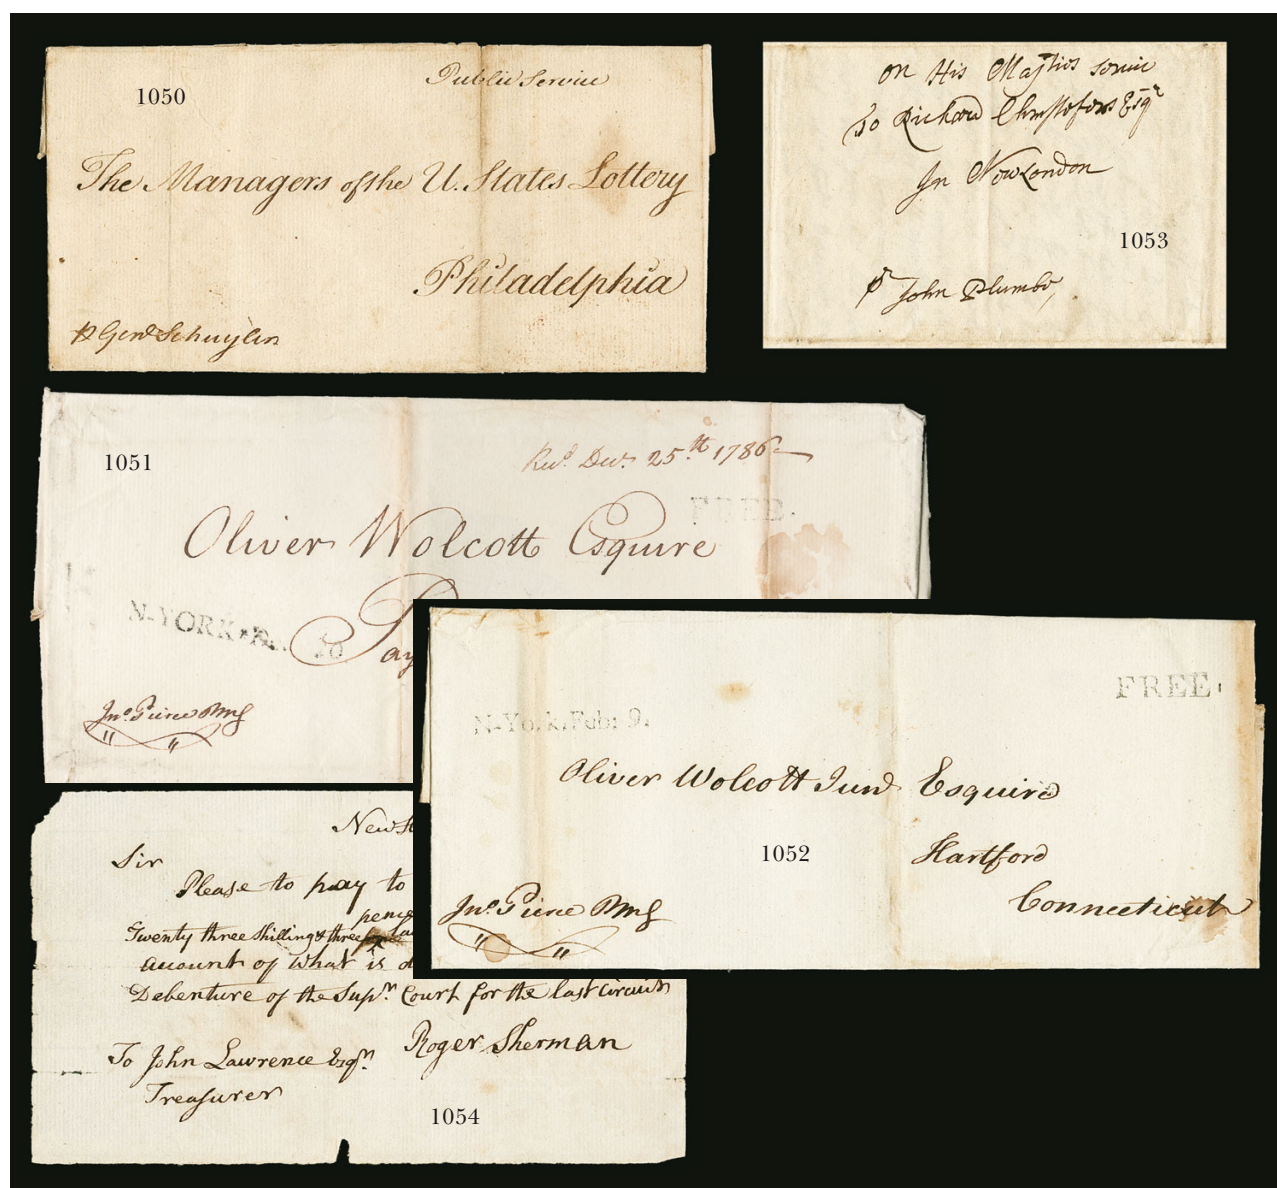 Public Service
1050
The Managers of the U. States Lottery
Philadelphia
P Genl Schuyler
on His Majties Servic
To Richard Christofers Esqr
In New London
1053
pr John Plumbe,
1051
Recd. Decr. 25.th 1786
FREE.
Oliver Wolcott Esquire
N-YORK
Pay
Jno. Pierce
FREE.
N-York, Feb: 9.
Oliver Wolcott Junr Esquire
1052
Hartford
Connecticut
Jno. Pierce
New
Sir
Please to pay to
pence
Twenty three Shillings & three
account of what is
Debenture of the Supr. Court for the last Circuit
To John Lawrence Esqr. Roger Sherman
Treasurer
1054